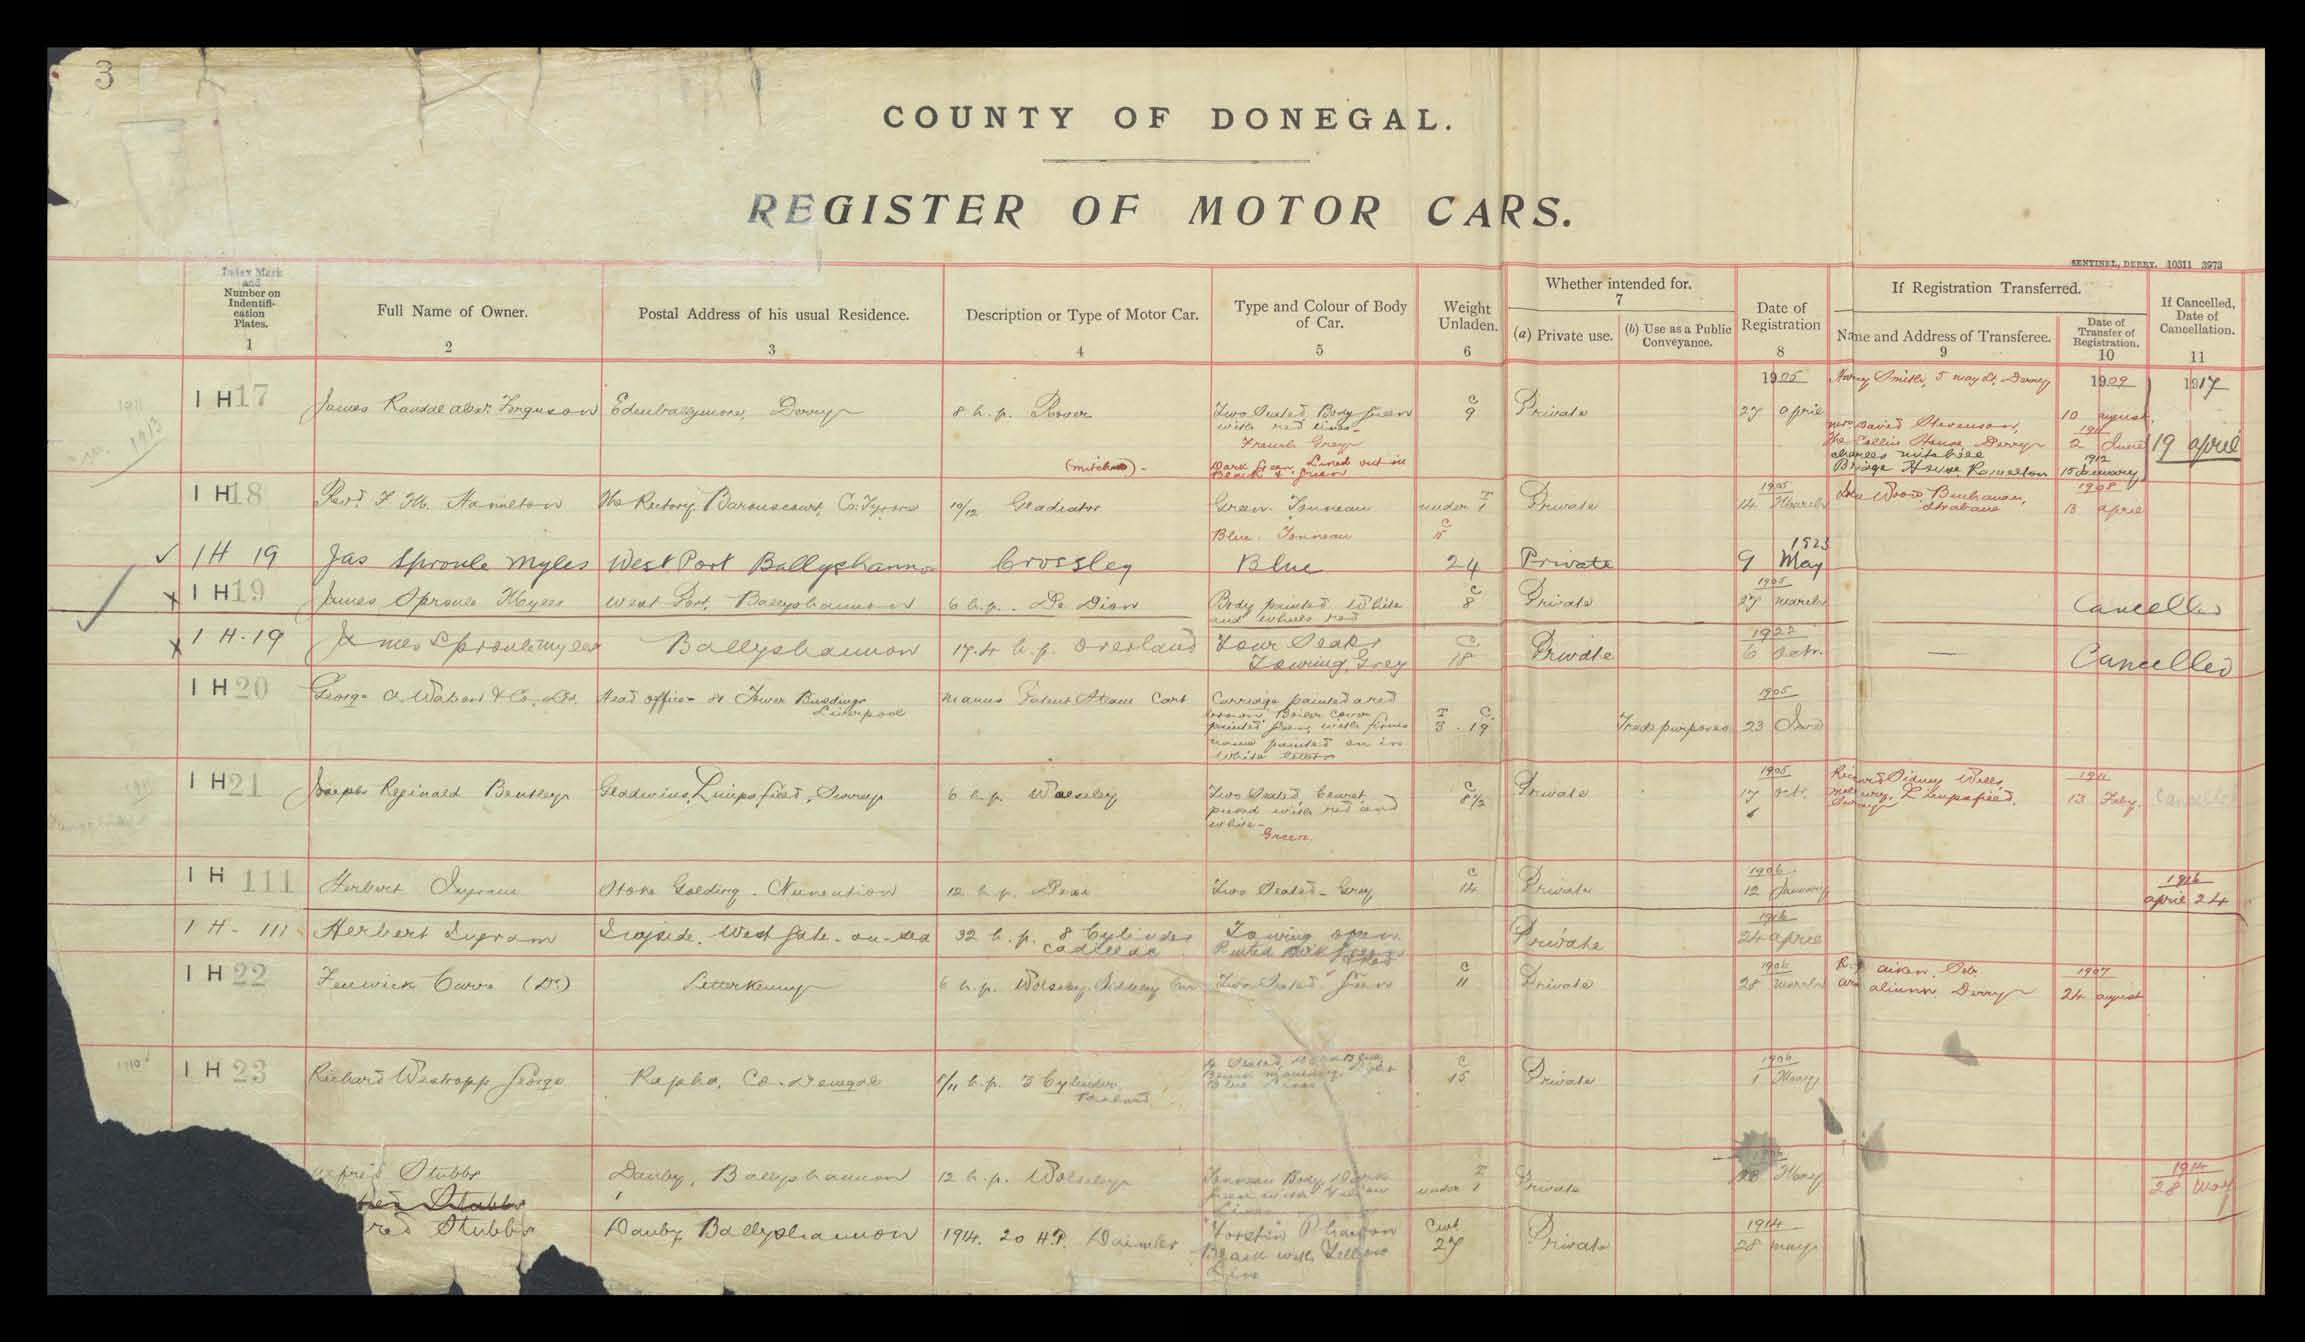 3
COUNTY OF DONEGAL.
REGISTER OF MOTOR CARS.
SENTINEL, DERRY. 10311 3973
Index Mark and Number on Indentifi-cation Plates. 1
Full Name of Owner. 2
Postal Address of his usual Residence. 3
Description or Type of Motor Car. 4
Type and Colour of Body of Car. 5
Weight Unladen. 6
Whether intended for. 7
(a) Private use.
(b) Use as a Public Conveyance.
Date of Registration 8
If Registration Transferred.
Name and Address of Transferee. 9
Date of Transfer of Registration. 10
If Cancelled, Date of Cancellation. 11
1911
1913
I H 17 James Randal Alexr. Ferguson Edenballymore, Derry 8 h.p. Rover Two Seated Body Green with red lines - C 9 Private 1905 27 April Harry Smith, 5 May St, Derry 1909 10 August 1917 19 April
French Grey
(Mitchell) -
Dark Green, Lined out in Black & Green
Mrs David Stevenson, The Collin House, Derry 1911 2 June
Charles Mitchell Bridge House Ramelton 1912 15 January
I H 18 Revd. F. M. Hamilton The Rectory, Baronscourt, Co. Tyrone 10/12 Gladiator Green. Tonneau under T 1 Private 1905 14 March John Wood Buchanan, Strabane 1908 13 April
Blue. Tonneau C 15
✓ I H 19 Jas Sproule Myles West Port Ballyshannon Crossley Blue 24 Private 1923 9 May
x I H 19 James Sproule Myles West Port, Ballyshannon 6 h.p. - De Dion Body painted White and wheels red C 8 Private 1905 27 March Cancelled
x I H - 19 James Sproule Myles Ballyshannon 17.4 h.p. Overland Four Seater Touring, Grey C 18 Private 1922 6 Octr. — Cancelled
I H 20 George A. Watson & Co. Ltd. Head office - 84 Tower Buildings Liverpool Manns Patent Steam Cart Carriage painted a red brown. Boiler Cover painted green, with firms name painted on in white letters T 3 . C 19 Trade purposes 1905 23 June
1911
I H 21 Joseph Reginald Bentley Gladwins, Limpsfield, Surrey 6 h.p. Wolseley Two Seated Claret picked with red and white - C 8½ Private 1905 17 Oct. Richard Sidney Wells, Limpsfield, Surrey 1911 13 Feby. Cancelled
Green.
I H 111 Herbert Ingram Stoke Golding - Nuneaton 12 h.p. Two Seated - Grey C 14 Private 1906 12 January 1916 April 24
I H - 111 Herbert Ingram Ingside. Westgate - on - sea 32 h.p. 8 Cylinder Cadillac Touring open. Painted Private 1916 24 April
I H 22 Fenwick Carre (Dr.) Letterkenny 6 h.p. Wolseley Siddeley Car Two Seated Green C 11 Private 1906 28 March Aiken, Derry 1907 24 August
1910
I H 23 Richard Westropp George Raphoe, Co. Donegal 8/11 h.p. 3 Cylinder Panhard 4 Seated, Blue Lines C 15 Private 1906 1 May
Stubbs Danby, Ballyshannon 12 h.p. Wolseley Tonneau Body, Dark green with Yellow Lines under T 1 Private 1906 28 May 1914 28 May
Stubbs
Stubbs Danby, Ballyshannon 1914. 20 H.P. Daimler "Torstin" Phaeton Black with Yellow Line Cwt 27 Private 1914 28 May